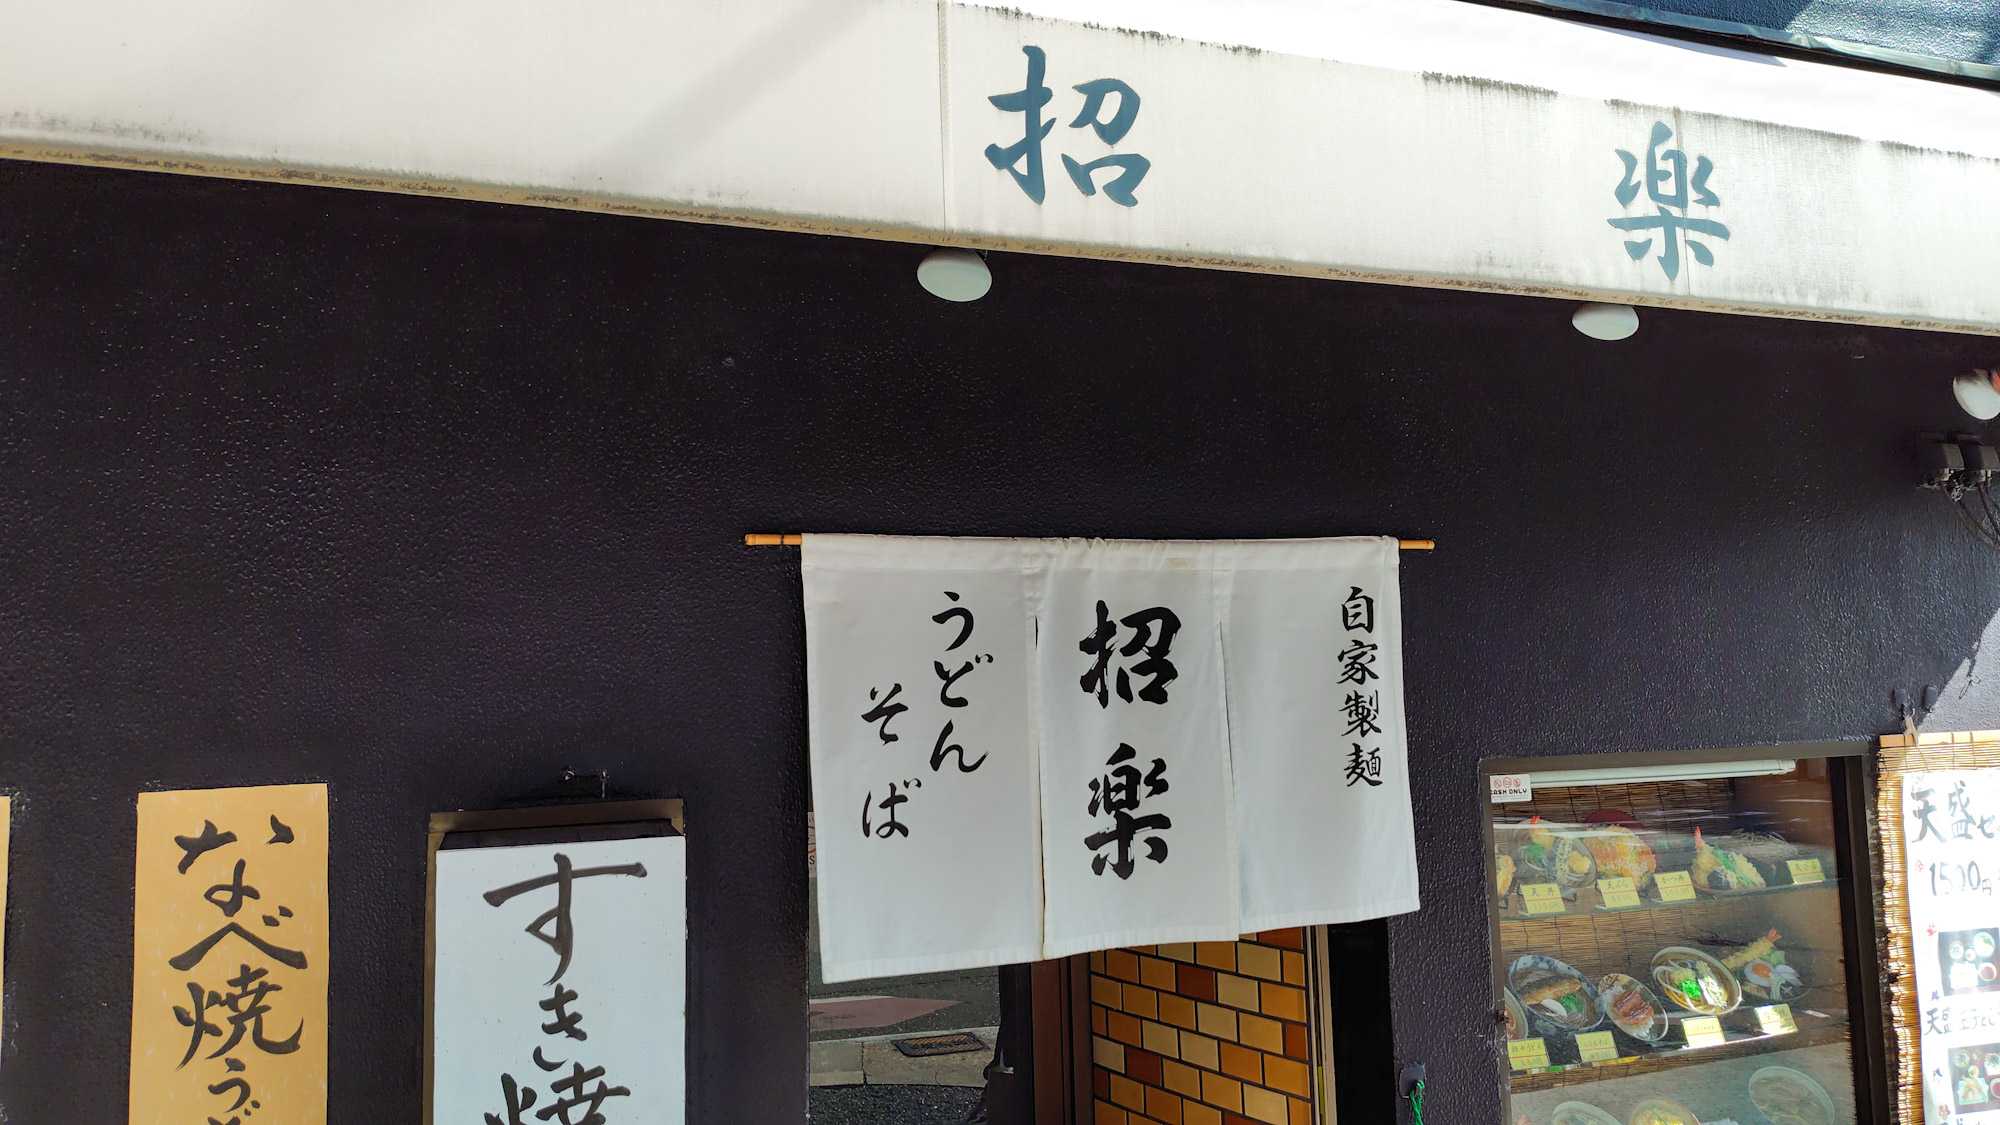 招楽
自家製麺
招楽
うどん
そば
なべ焼う
すき焼
CASH ONLY
天盛
1500円